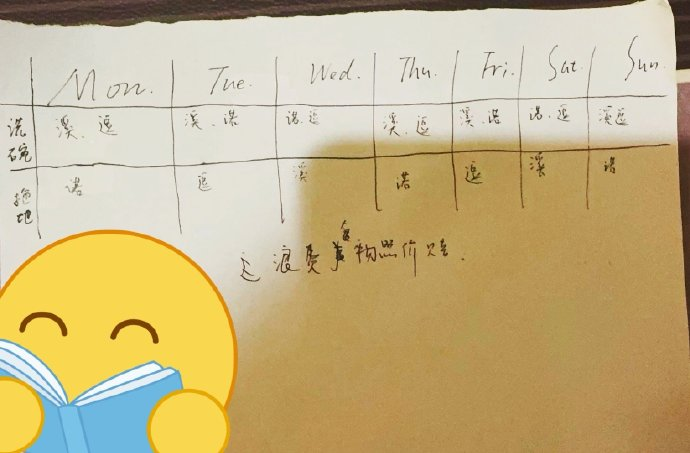 Mon. Tue. Wed. Thu. Fri. Sat. Sun.
洗碗 溪、逗 溪、诺 诺、逗 溪、逗 溪、诺 诺、逗 溪逗
拖地 诺 逗 溪 诺 逗 溪 诺
浪费食物照价赔.